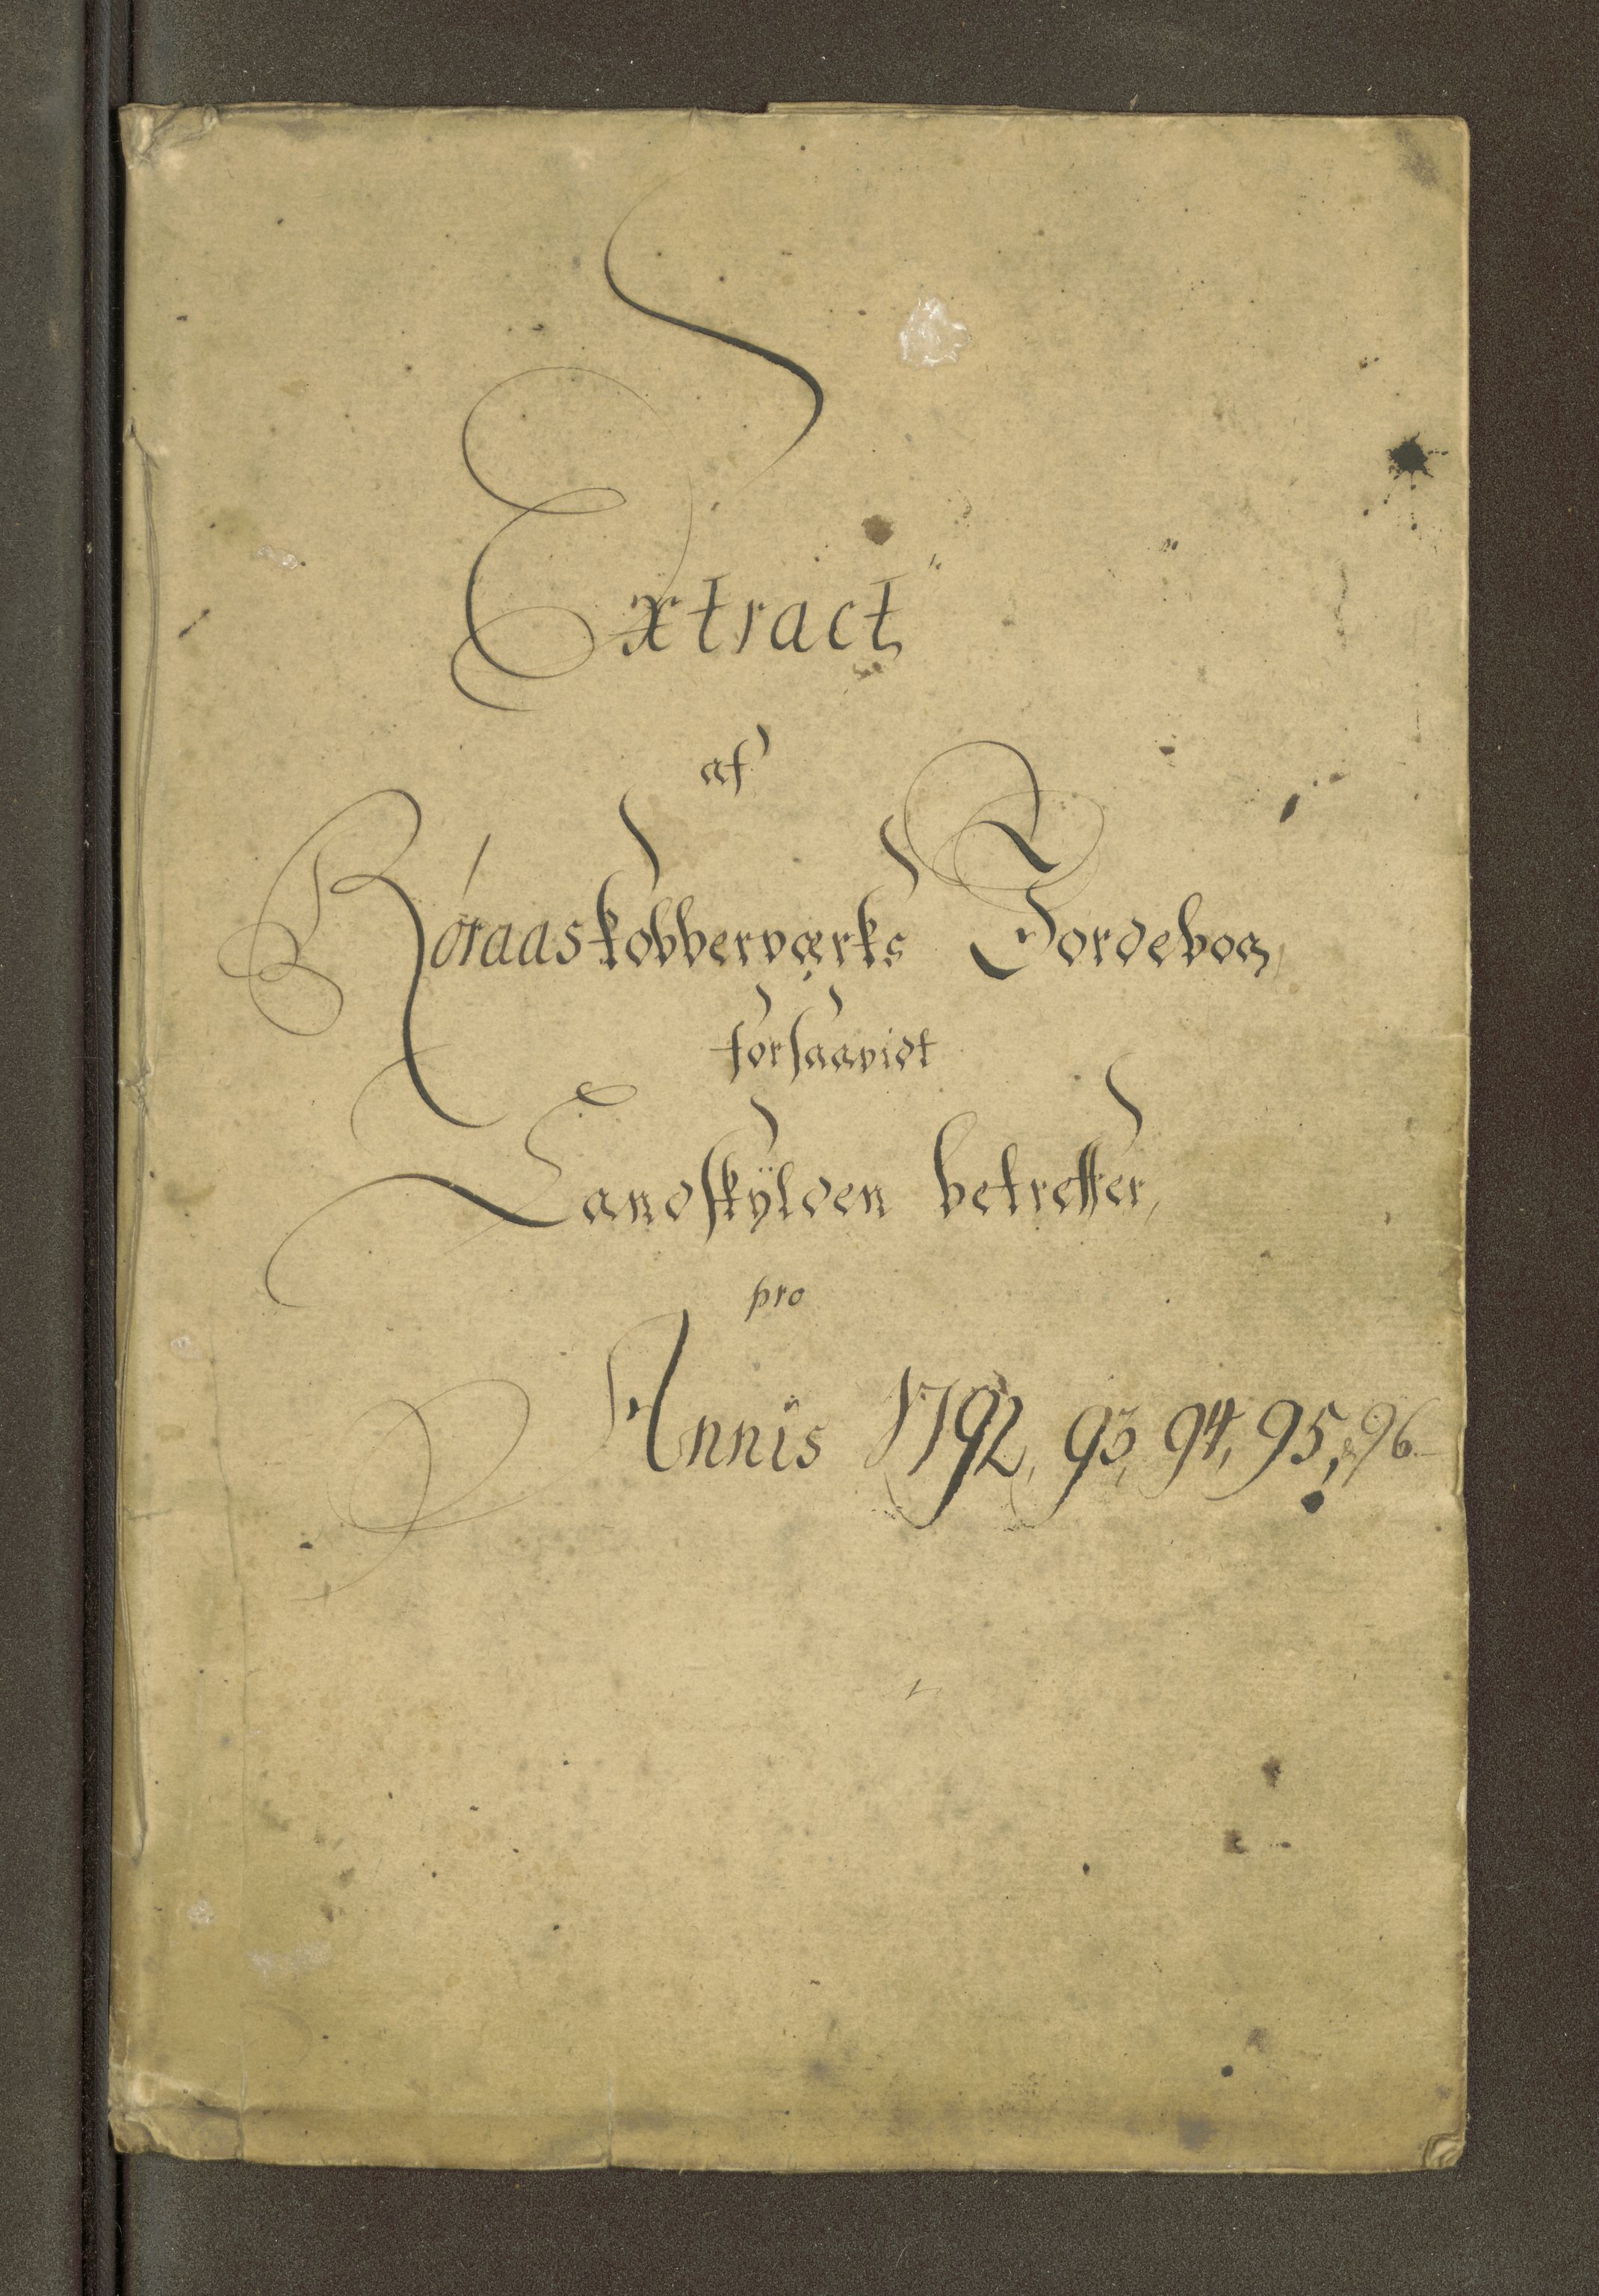 Extract
af
Røraas kobberværks Jordebog,
forsaavidt
Landskÿlden betreffer,
pro
Annis 1792, 93, 94, 95, & 96